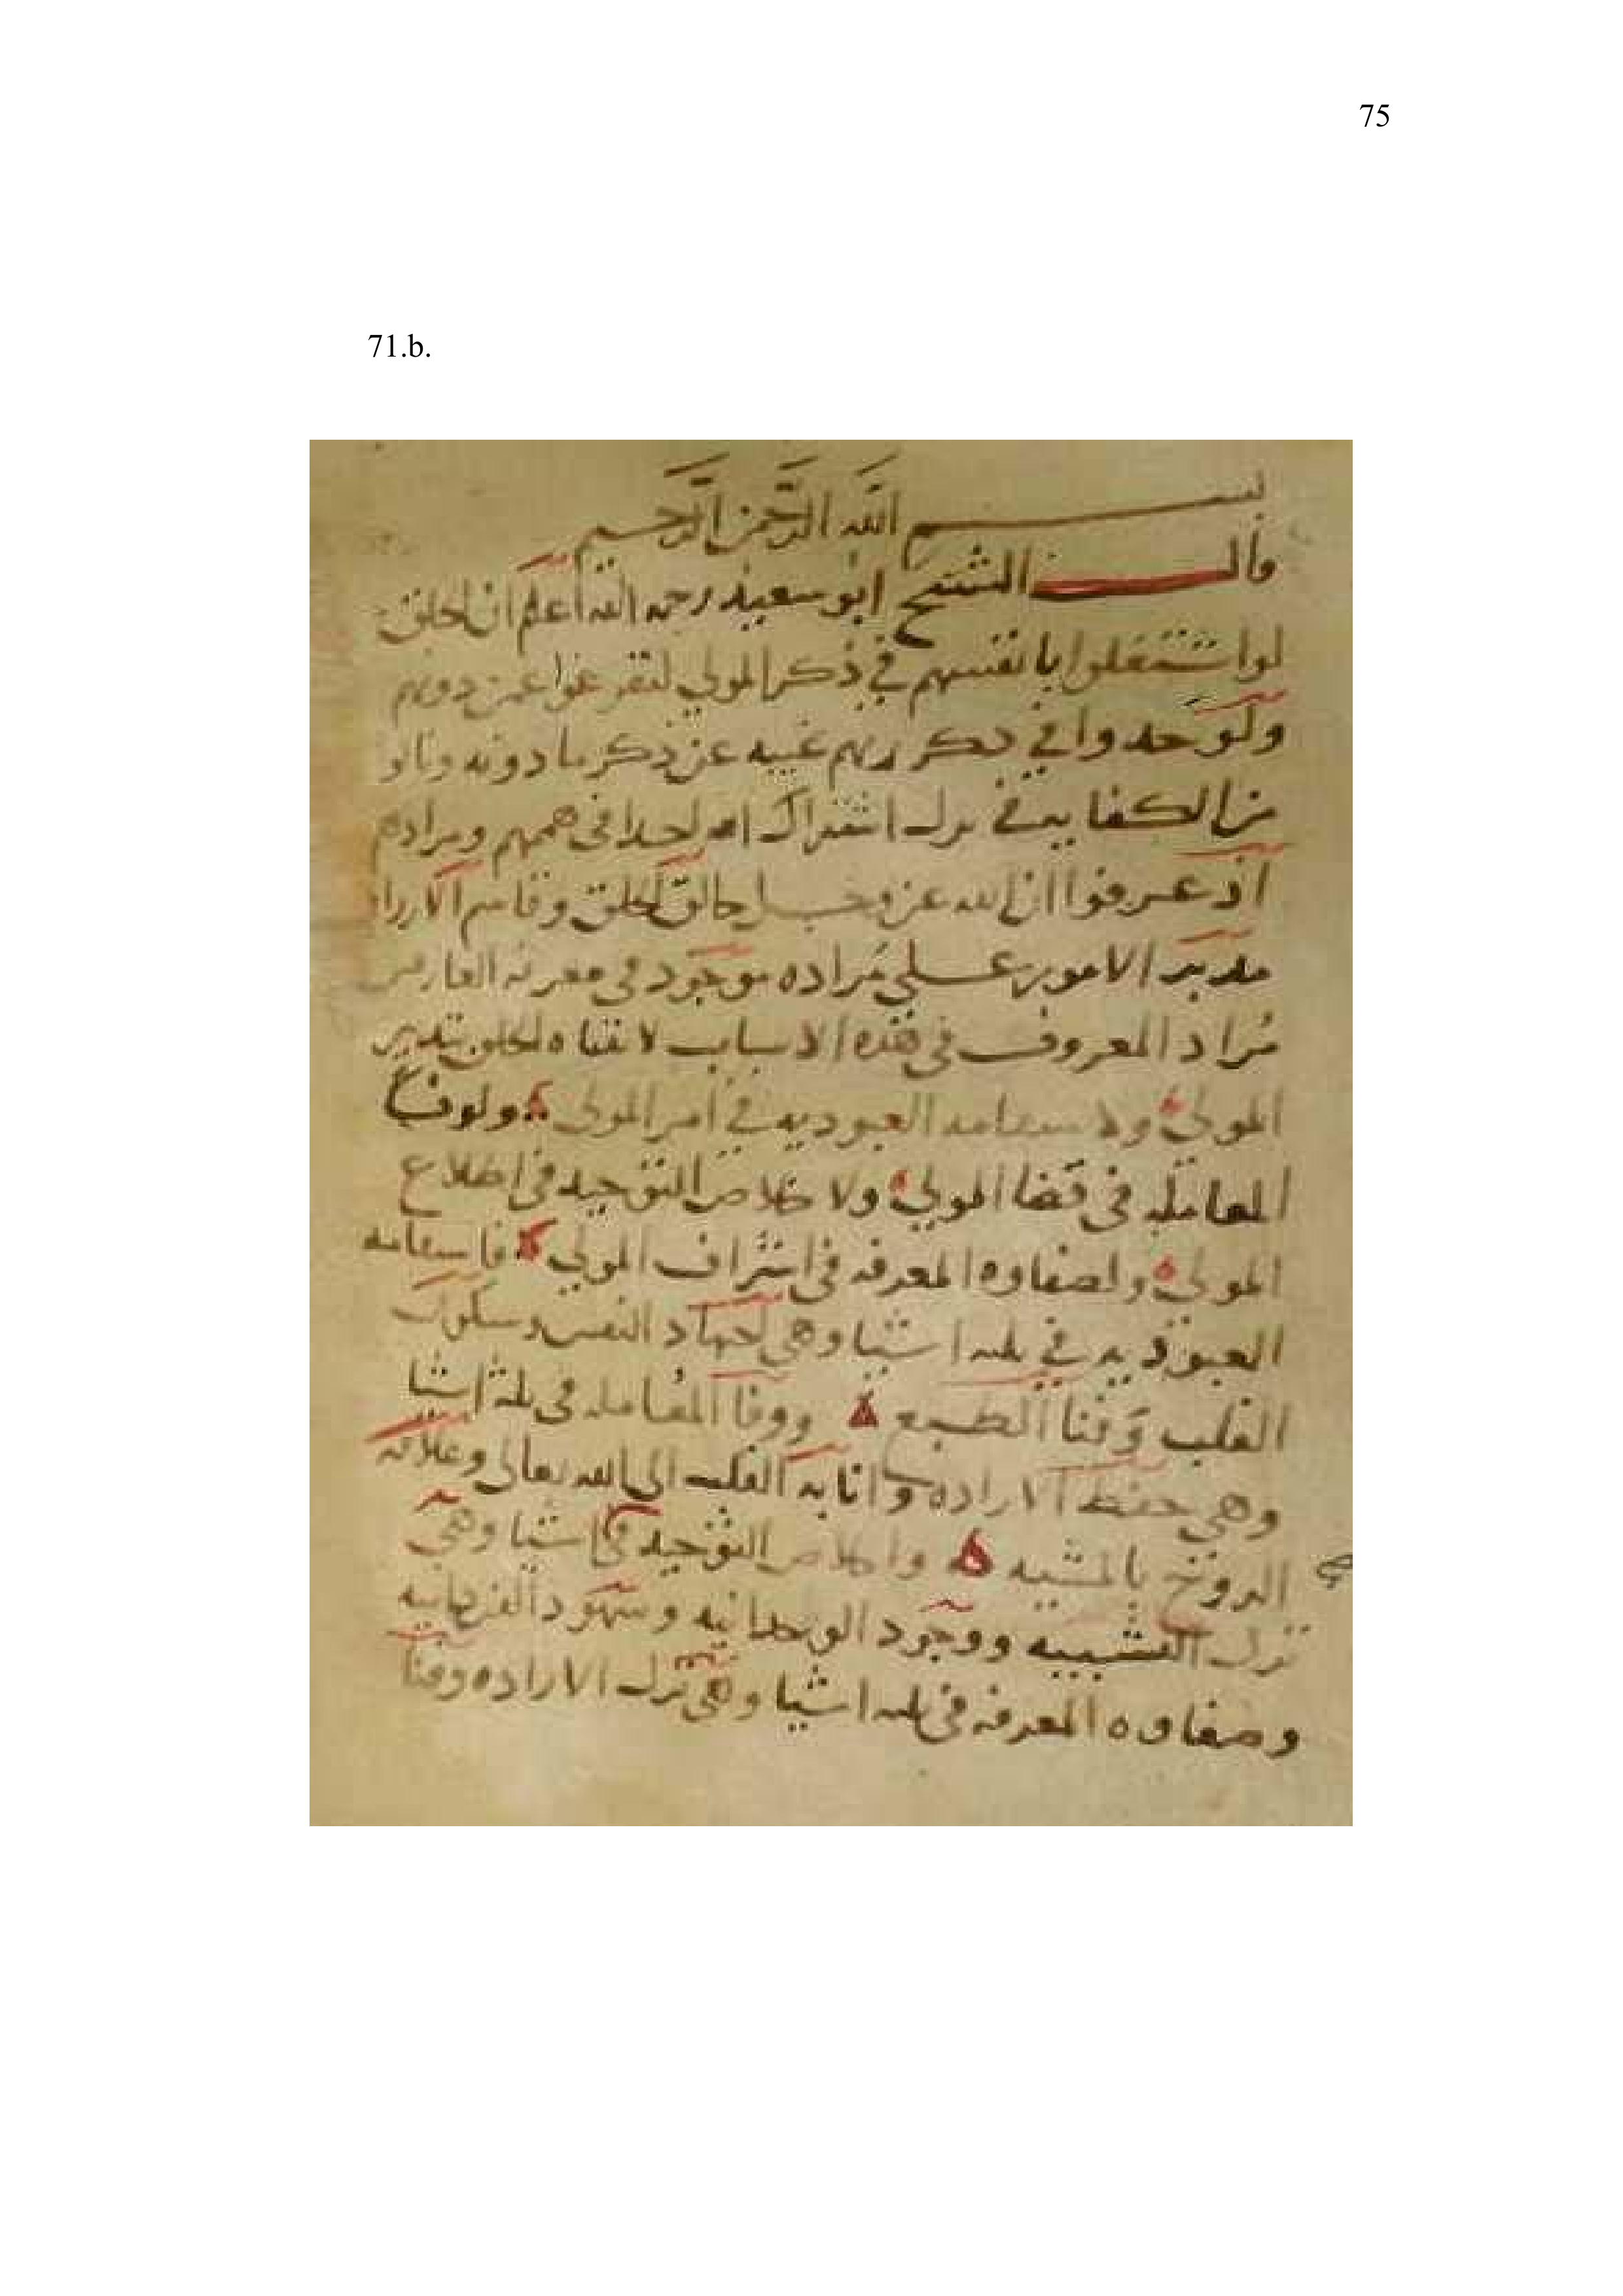 75
71.b.
بسم الله الرحمن الرحيم
قال الشيخ ابو سعيد رحمه الله اعلم ان الخلق
لو اشتغلوا بانفسهم في ذكر المولي لتفرغوا عمن دونهم
ولو وجدوا في ذكر ربهم غيبه عن ذكر ما دونه ونالو
من الكفايه في ترك اشتراك احدا في هممهم ومرادهم
اذ عرفوا ان الله عز وجل خالق الخلق وقاسم الارزاق
مدبر الامور علي مراده موجود في معرفه العارفين
مراد المعروف في هذه الاسباب الخلق بتدبير
المولي ولاستقامه العبوديه في امر المولي ولوفا
المعامله في قضا المولي ولاخلاص التوحيد في اطلاع
المولي ولصفاوه المعرفه في اشراف المولي فاستقامه
العبوديه في ثلثه اشيا وهي اجهاد النفس وسكون
القلب وفنا الطبع ووفا المعامله في ثلثه اشيا
وهي حفظ الاراده وانابه القلب الى الله تعالى وعلاقه
الروح بالمشيه واخلاص التوحيد في اشيا وهي
ترك التشبيه ووجود الوحدانيه وشهود الفردانيه
وصفاوه المعرفه في ثلثه اشيا وهي ترك الاراده وفنا